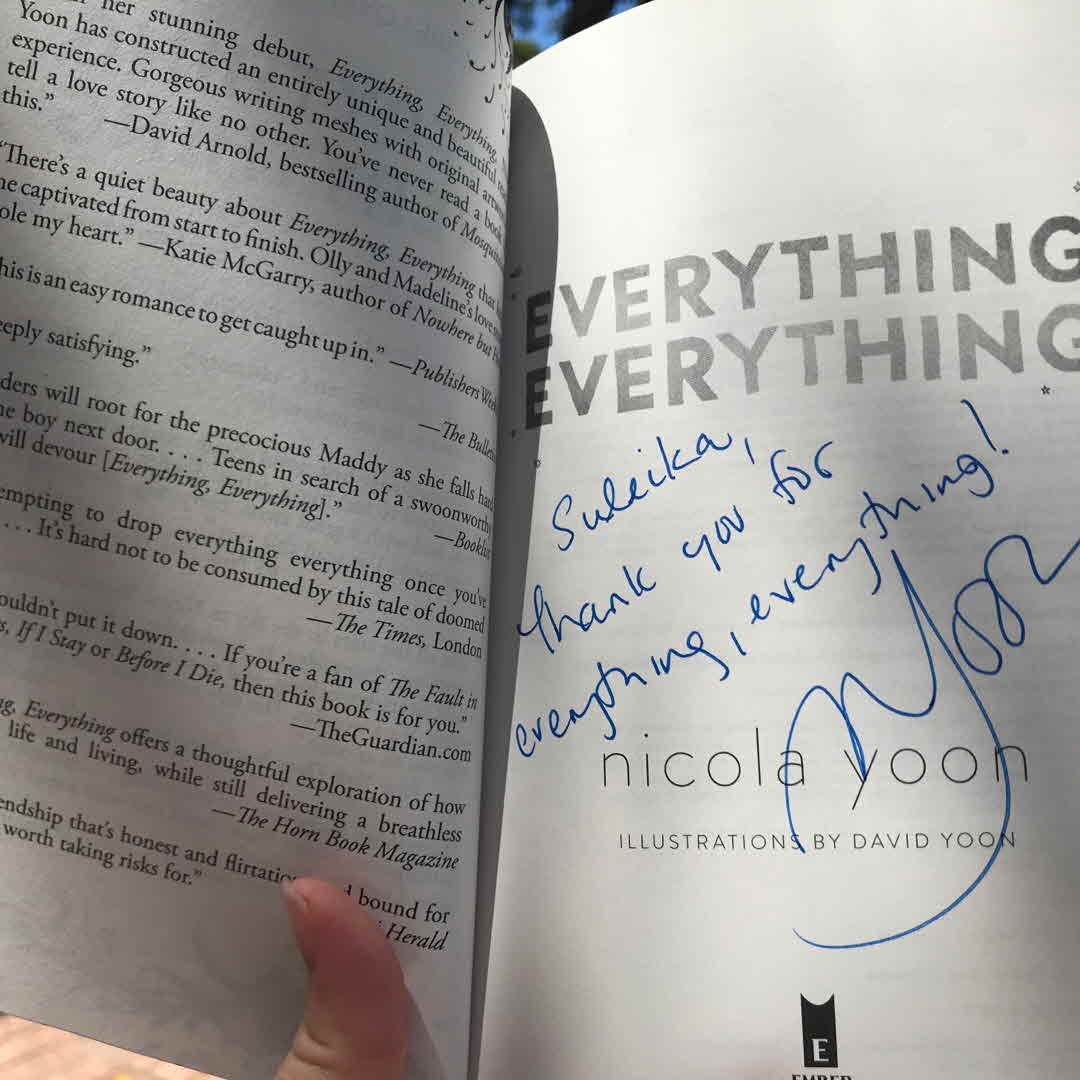 her stunning debut, Everything, Everything,
Yoon has constructed an entirely unique and beautiful
experience. Gorgeous writing meshes with original
tell a love story like no other. You’ve never read a book
this.”
—David Arnold, bestselling author of
“There’s a quiet beauty about Everything, Everything that
captivated from start to finish. Olly and Madeline’s love
my heart.” —Katie McGarry, author of Nowhere but
is an easy romance to get caught up in.” —Publishers
satisfying.”
—The
will root for the precocious Maddy as she falls hard
boy next door. . . . Teens in search of a swoonworthy
will devour [Everything, Everything].”
to drop everything everything once you’ve
. . . . It’s hard not to be consumed by this tale of doomed
—The Times, London
put it down. . . . If you’re a fan of The Fault in
If I Stay or Before I Die, then this book is for you.”
—TheGuardian.com
Everything offers a thoughtful exploration of how
life and living, while still delivering a breathless
—The Horn Book Magazine
that’s honest and bound for
worth taking risks for.”
Herald
EVERYTHING
EVERYTHING
Suleika,
thank you for
everything, everything!
nicola yoon
ILLUSTRATIONS BY DAVID YOON
E
EMBER